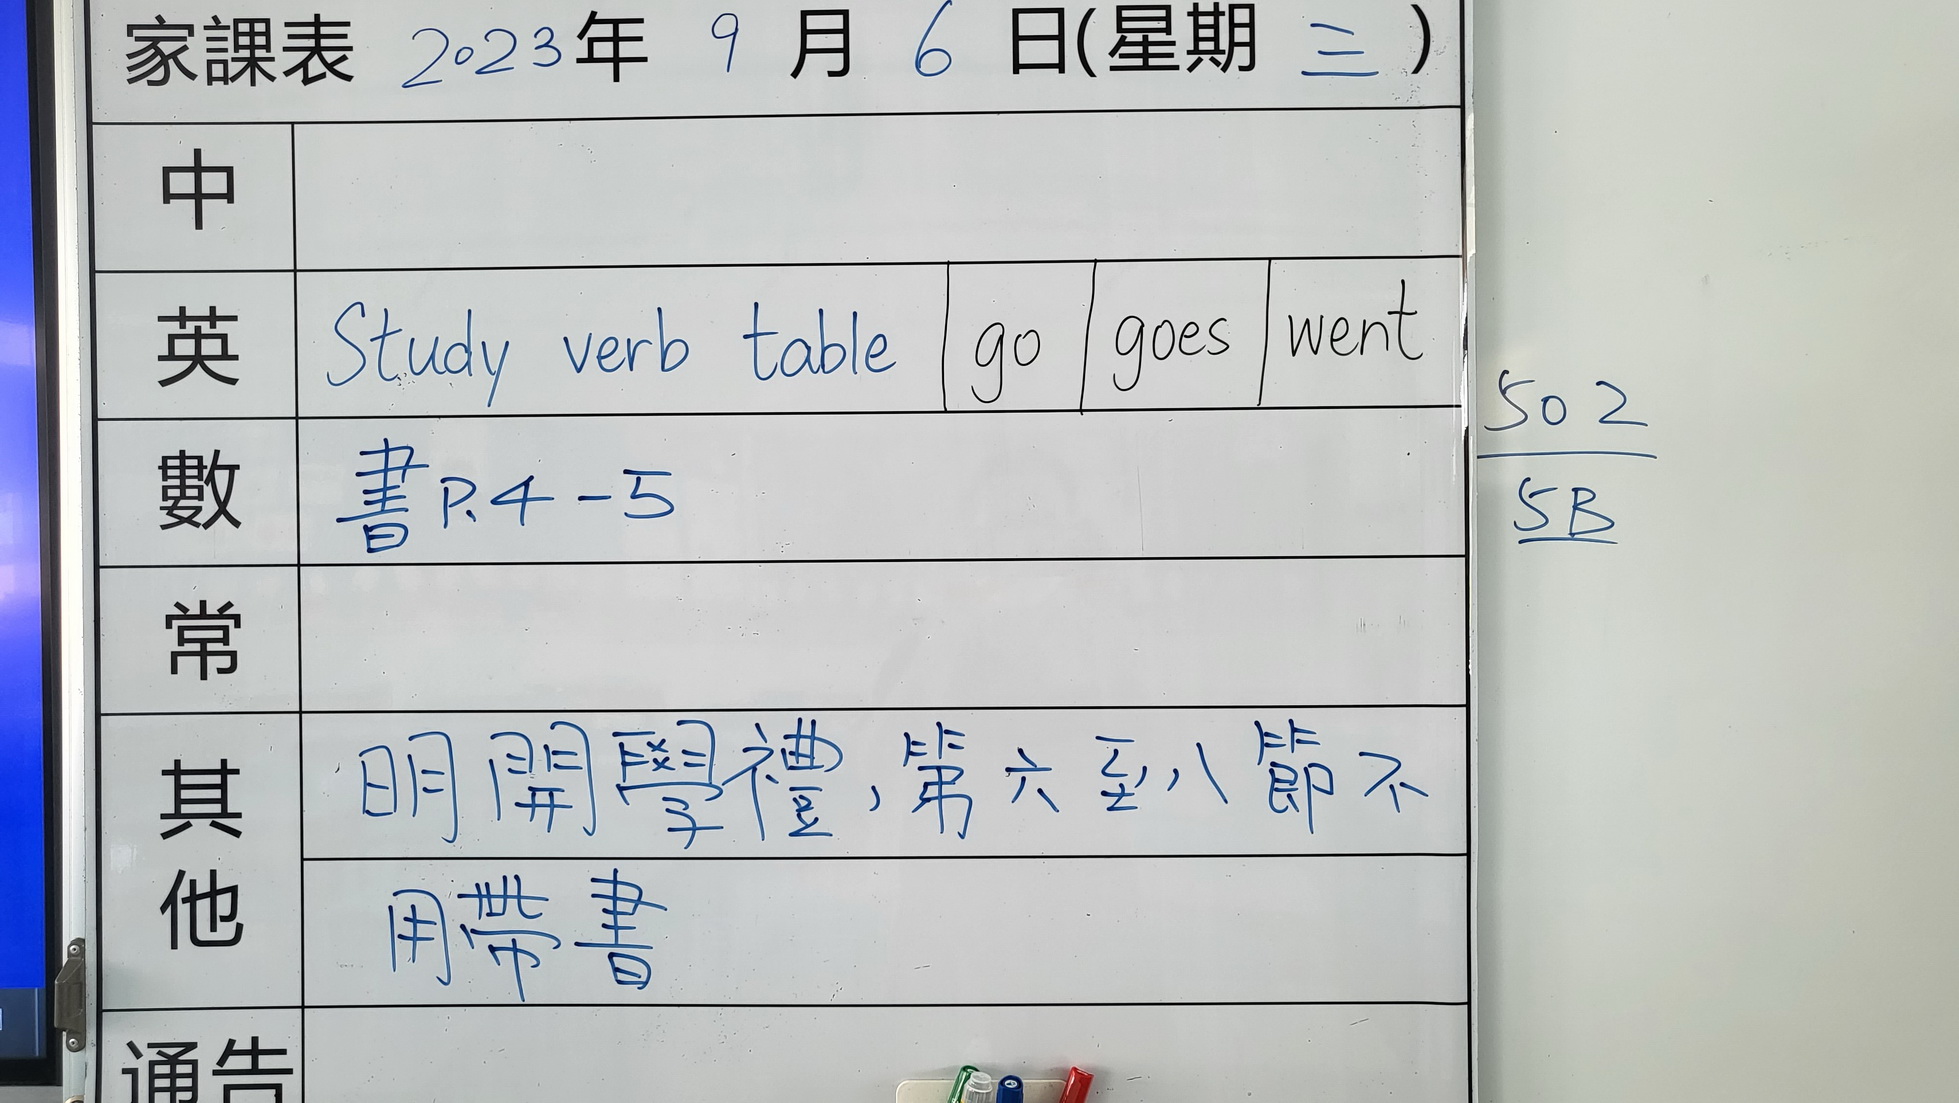 家課表 2023年 9 月 6 日(星期 三 )
中
英 Study verb table go goes went
數 書P.4-5
常
其他 明開學禮,第六到八節不
用帶書
通告
502
5B